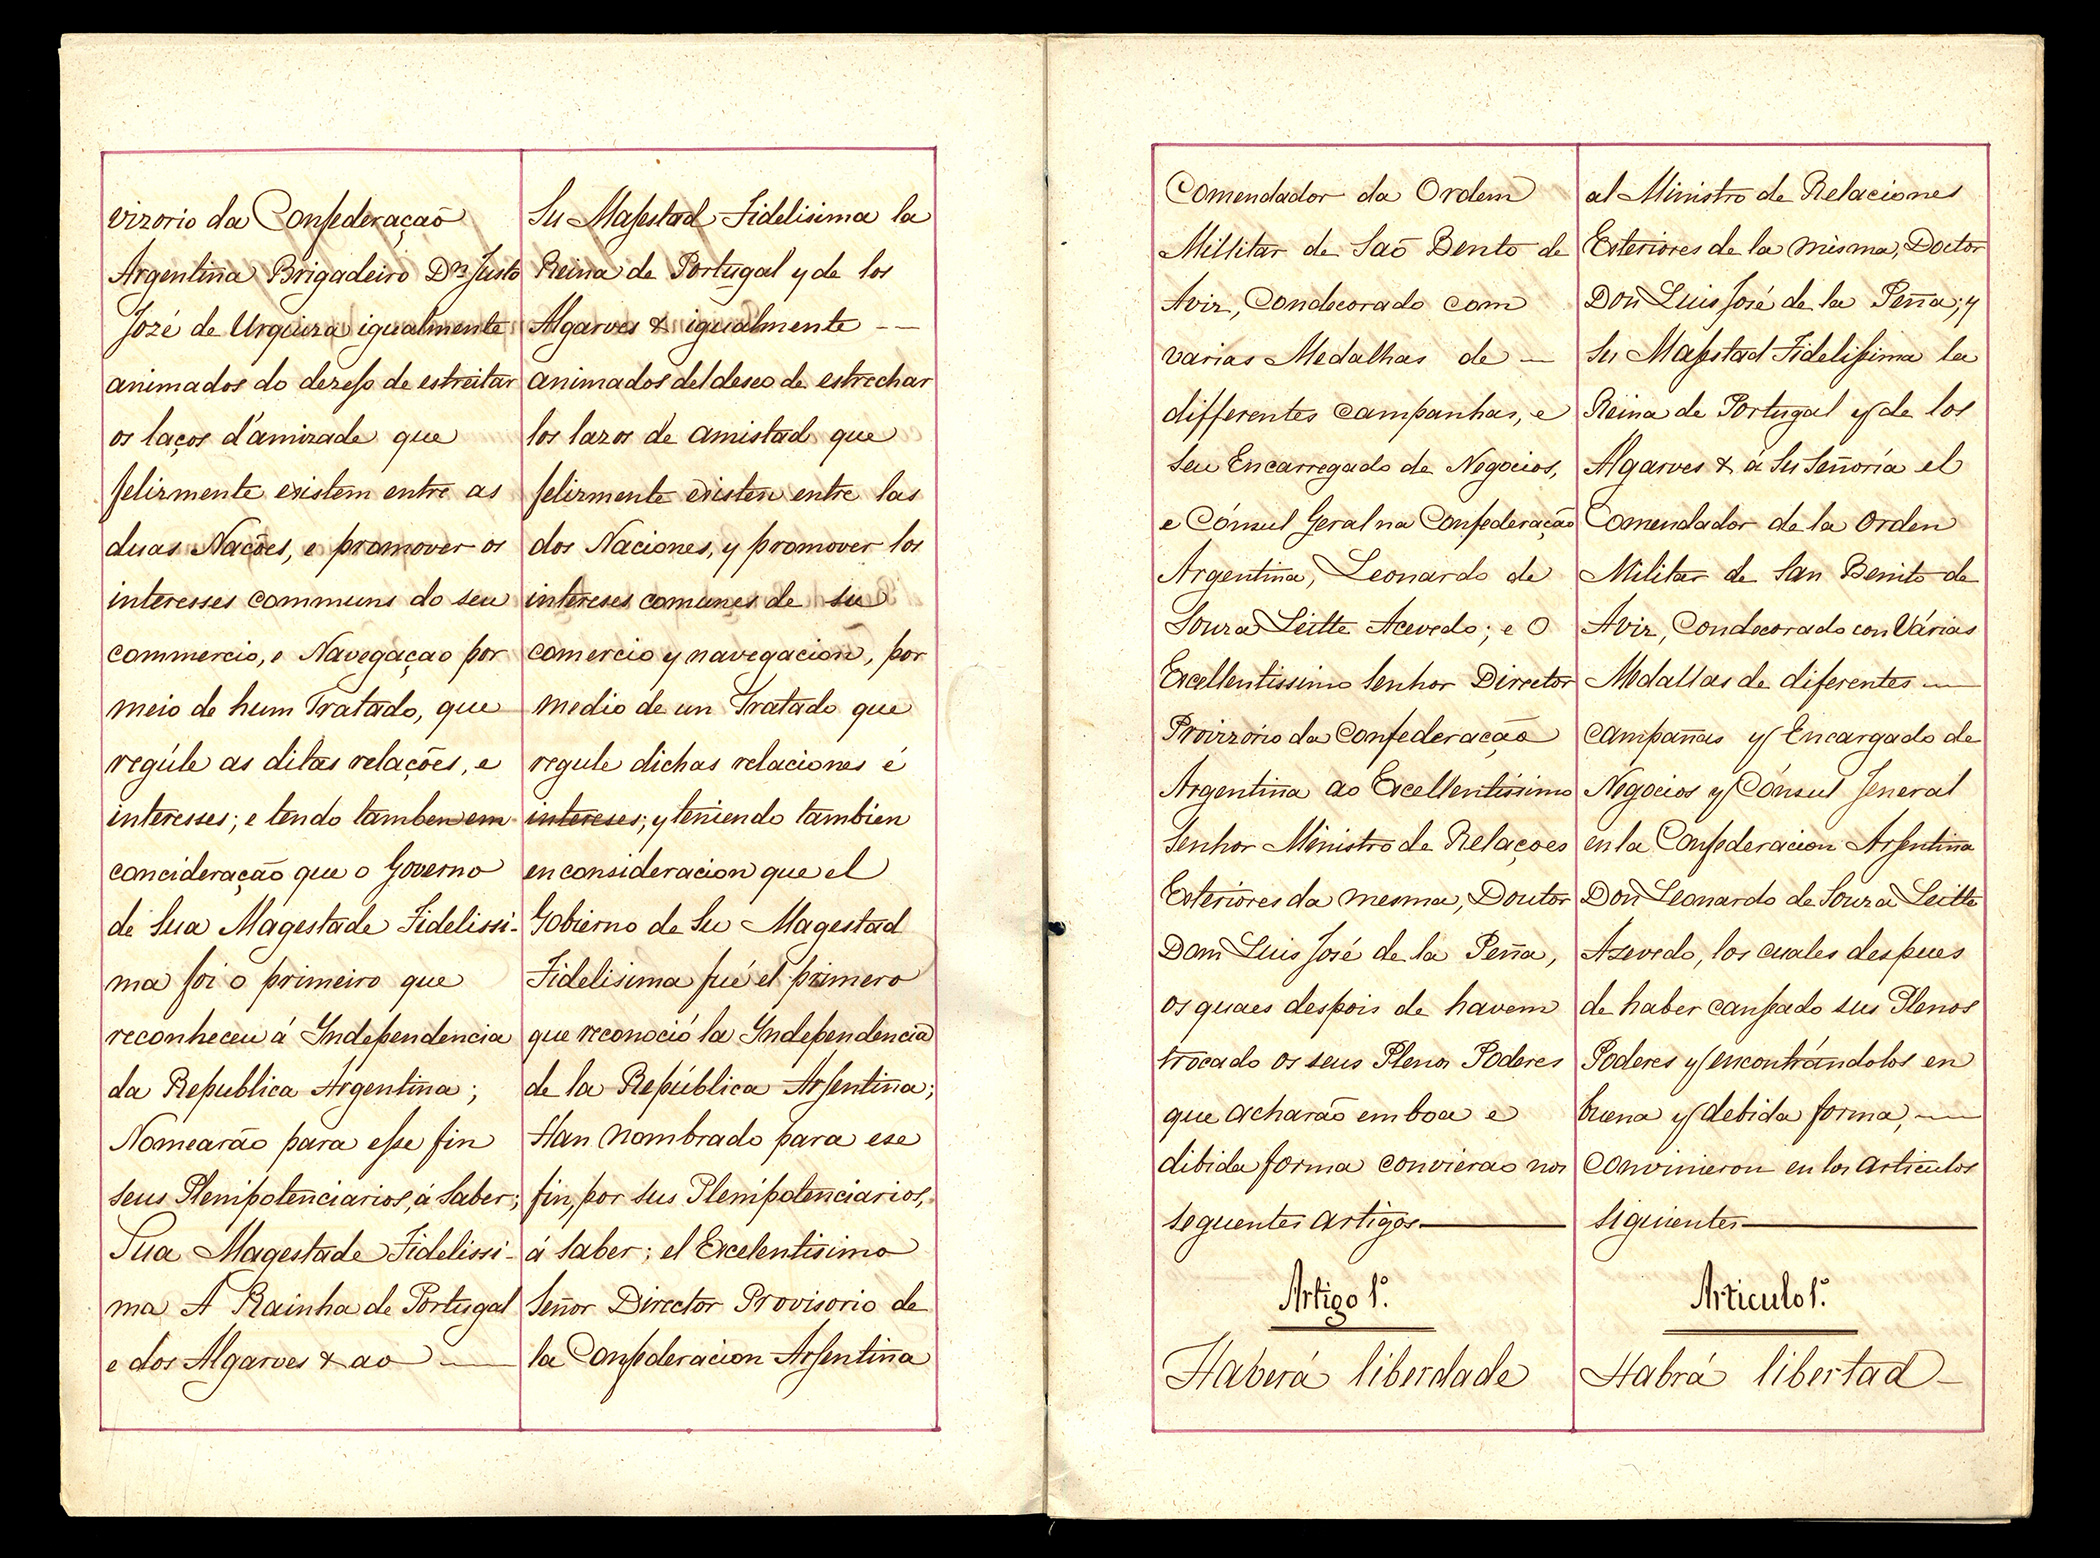 vizorio da Confederaçaõ
Argentina Brigadeiro Dn Justo
Jozé de Urquiza igualmente
animados do dezejo de estreitar
os laços d'amizade que
felizmente existem entre as
duas Nações, e promover os
interesses communs do seu
commercio, e Navegaçao por
meio de hum Tratado, que
regúle as ditas relações, e
interesses; e tendo tambem em
concideração que o Governo
de Sua Magestade Fidelissi-
ma foi o primeiro que
reconheceu á Independencia
da Republica Argentina;
Nomearão para esse fin
seus Plenipotenciarios, á saber;
Sua Magestade Fidelissi-
ma A Rainha de Portugal
e dos Algarves & ao —
Su Majestad Fidelisima la
Reina de Portugal y de los
Algarves & igualmente —
animados del deseo de estrechar
los lazos de amistad que
felizmente existen entre las
dos Naciones, y promover los
intereses comunes de su
comercio y navegacion, por
medio de un Tratado que
regule dichas relaciones é
intereses; y teniendo tambien
en consideracion que el
Gobierno de Su Magestad
Fidelisima fué el primero
que reconoció la Independencia
de la República Arjentina;
Han nombrado para ese
fin, por sus Plenipotenciarios,
á saber; el Excelentisimo
Señor Director Provisorio de
la Confederacion Arjentina
Comendador da Ordem
Millitar de Saõ Bento de
Aviz, Condecorado com
varias Medalhas de —
differentes campanhas, e
seu Encarregado de Negocios,
e Cónsul Geral na Confederação
Argentina, Leonardo de
Souza Leitte Acevedo; e O
Excellentissimo Senhor Dirretor
Provizorio da Confederação
Argentina ao Excellentissimo
Senhor Ministro de Relaçoes
Exteriores da mesma, Doutor
Dom Luis José de la Peña,
os quaes despois de havem
trocado os seus Plenos Poderes
que acharaõ em boa e
dibida forma convierao nos
seguentes artigos —
Artigo 1º.
Haberá liberdade
al Ministro de Relaciones
Exteriores de la misma, Doctor
Don Luis José de la Peña; y
Su Majestad Fidelissima la
Reina de Portugal y de los
Algarves & á Su Señoría el
Comendador de la Orden
Militar de San Benito de
Aviz, Condecorado con Várias
Medallas de diferentes —
campañas y Encargado de
Negocios y Cónsul Jeneral
en la Confederacion Arjentina
Don Leonardo de Souza Leitte
Azevedo, los cuales despues
de haber canjeado sus Plenos
Poderes y encontrándolos en
buena y debida forma, —
Convinieron en los artículos
siguientes —
Articulo 1º.
Habrá libertad –